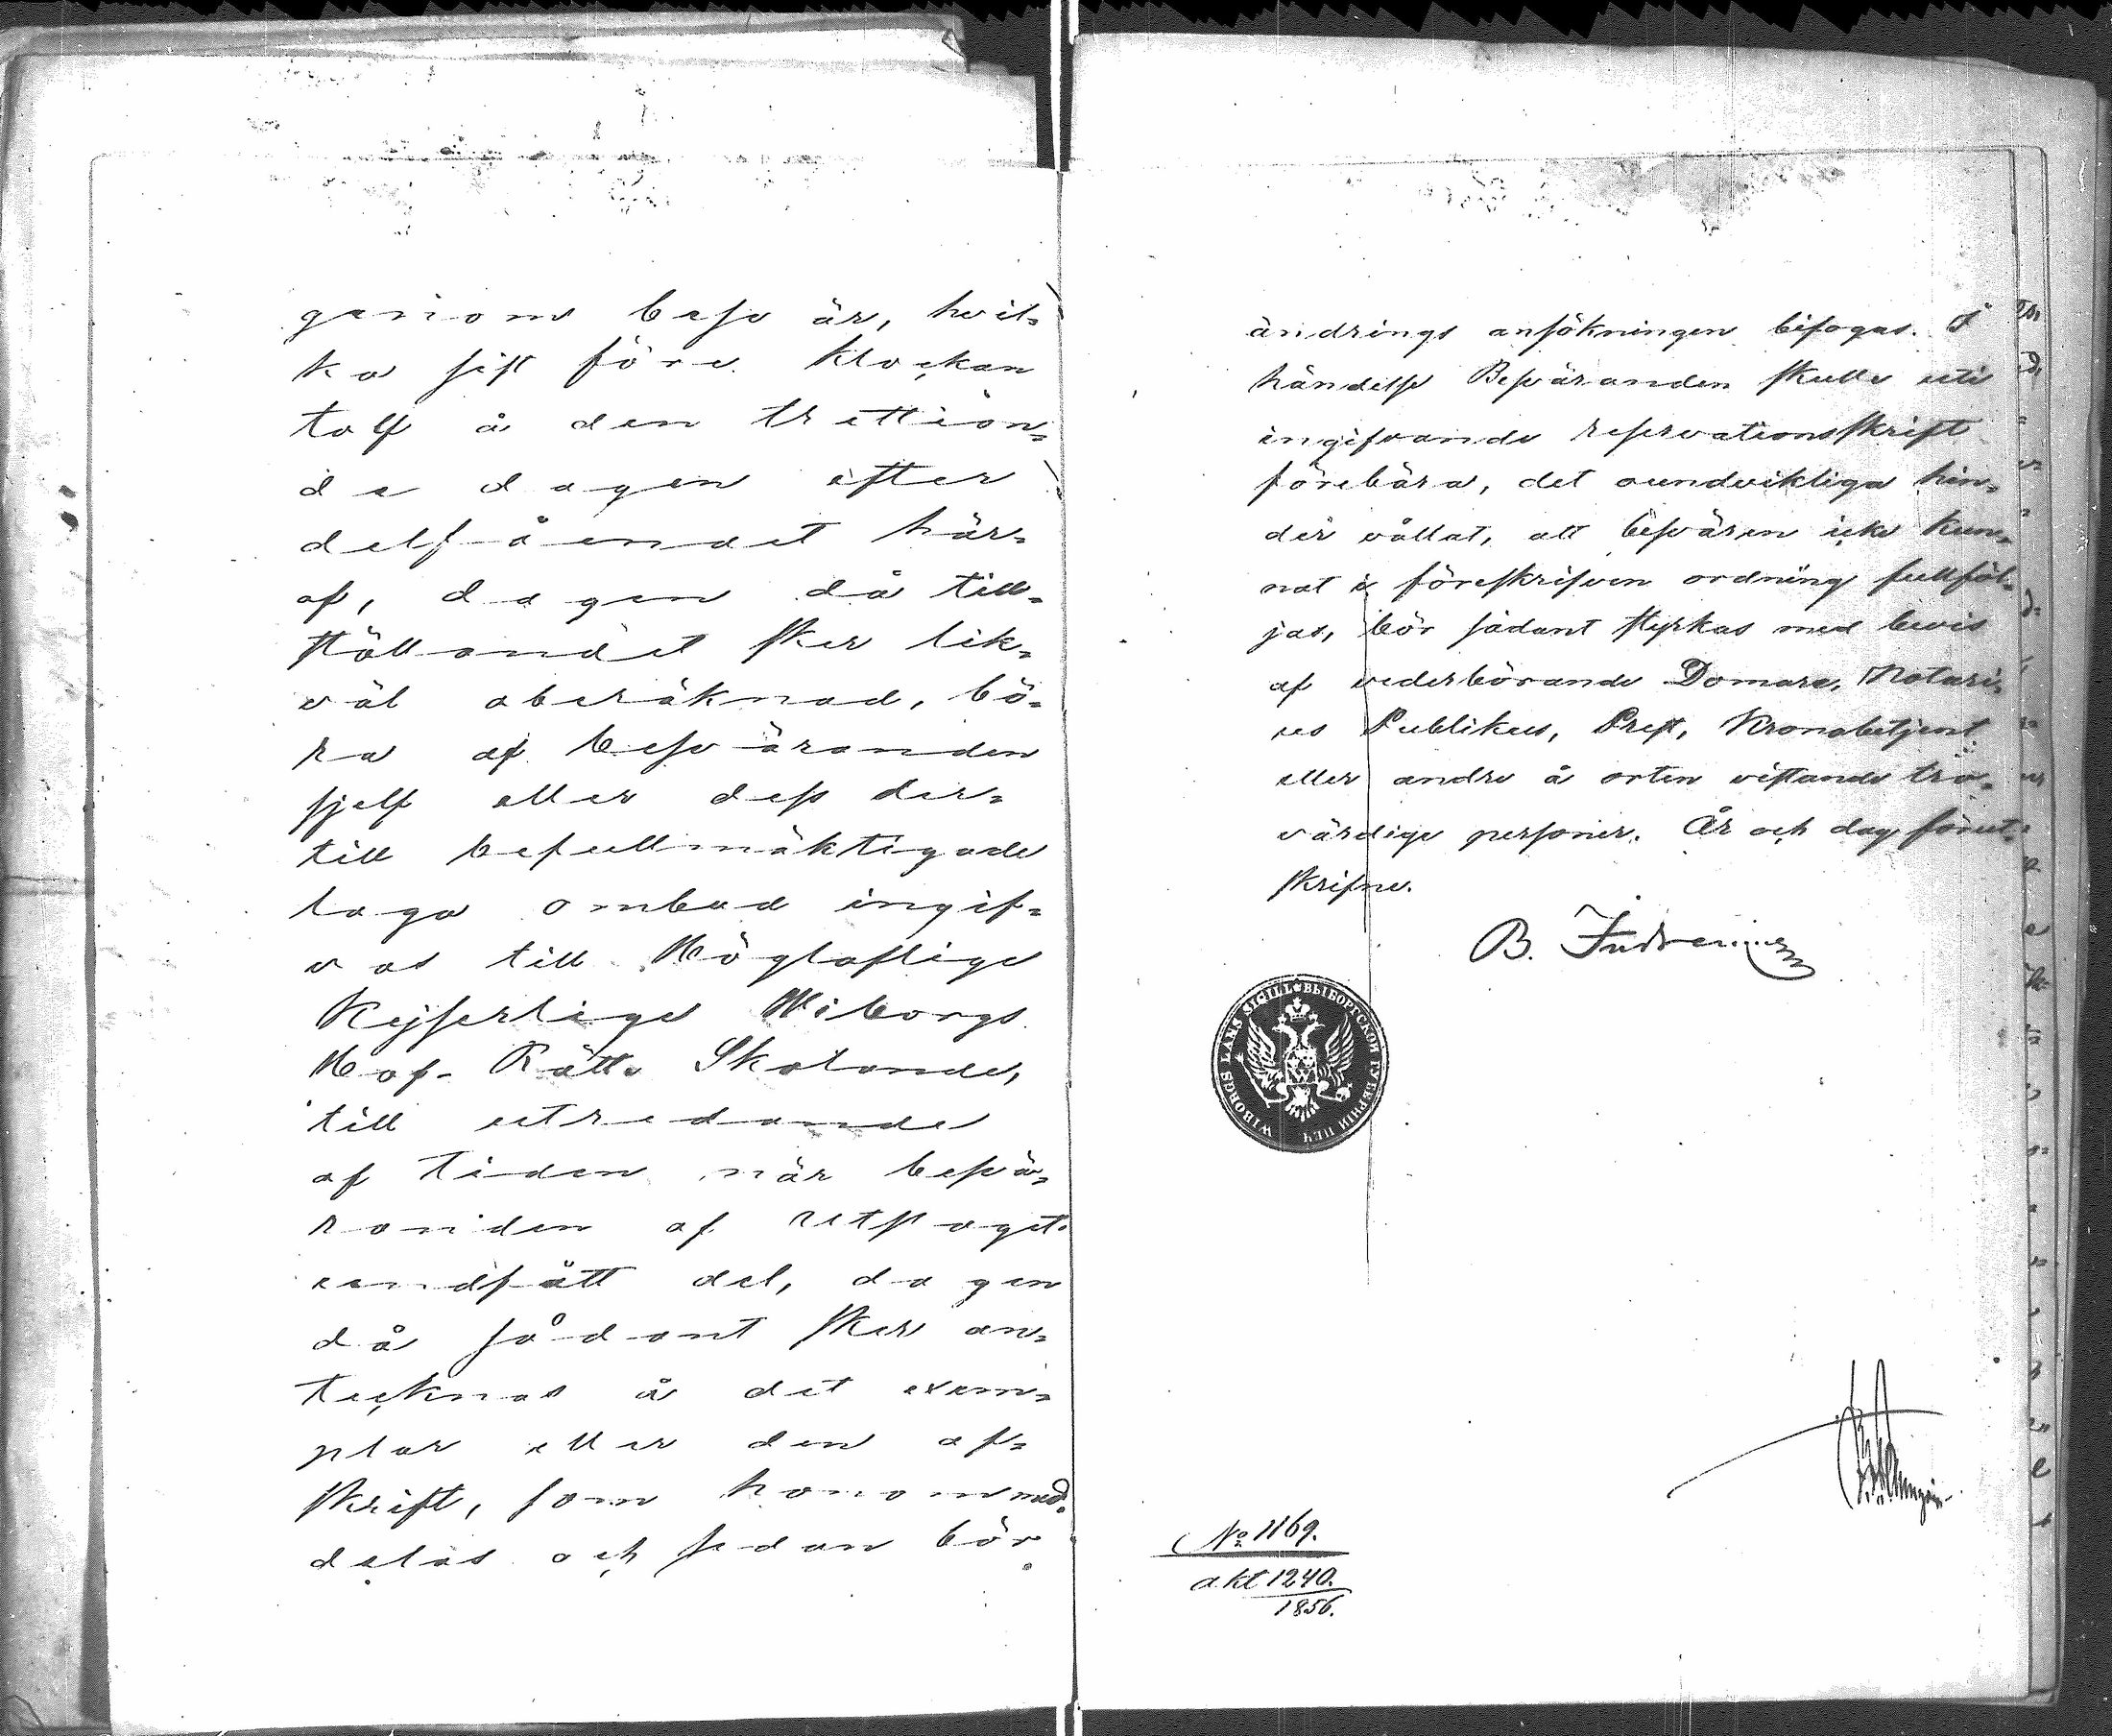 genom besvär, hvil=
ka sist före klockan
tolf å den trettion=
de dagen efter
delfåendet här=
af, dagen då till=
ställandet sker lik=
väl oberäknad, bö=
ra af besväranden
sjelf eller dess der=
till befullmäktigade
laga ombud ingif=
vas till Höglofliga
Kejserliga Wiborgs
Hof-Rätt. Skolande,
till utredande
af tiden när besvä=
randen af utslaget
undfått del, dagen
då sådant sker an=
tecknas å det exem=
plar eller den af=
skrift, som honom med=
delas och sedan bör
ändrings ansökningen bifogas. I
händelse Besväranden skulle uti
ingifvande reservationsskrift
förebära, det oundvikliga hin=
der vållat, att besvären icke kun=
nat i föreskrifven ordning fullföl=
jas, bör sådant styrkas med bevis
af vederbörande Domare, Notari=
us Publikus, Prest, Kronobetjent
eller andre å orten vistande tro=
värdige personer. År och dag förut=
skrifne.
B. Indrenius
WIBORGS LÄNS SIGILL ВЫБОРГСКОЙ ГУБЕРНІИ ПЕЧ
No 1169.
akt 1240.
1856.